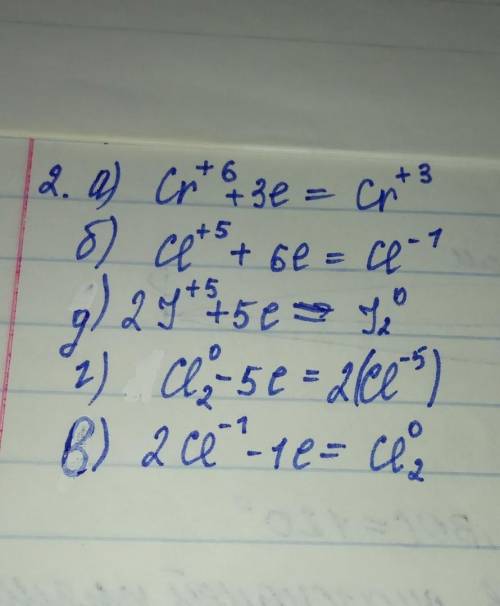 2. а) Cr⁺⁶ + 3e = Cr⁺³
б) Cl⁺⁵ + 6e = Cl⁻¹
д) 2J⁺⁵ + 5e = J₂⁰
г) Cl₂⁰ - 5e = 2(Cl⁻⁵)
в) 2Cl⁻¹ - 1e = Cl₂⁰